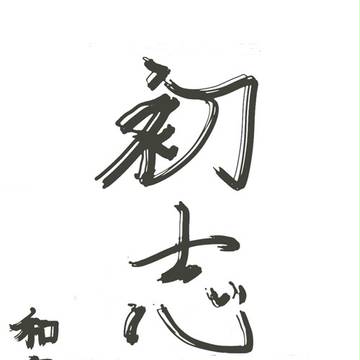 初志
和